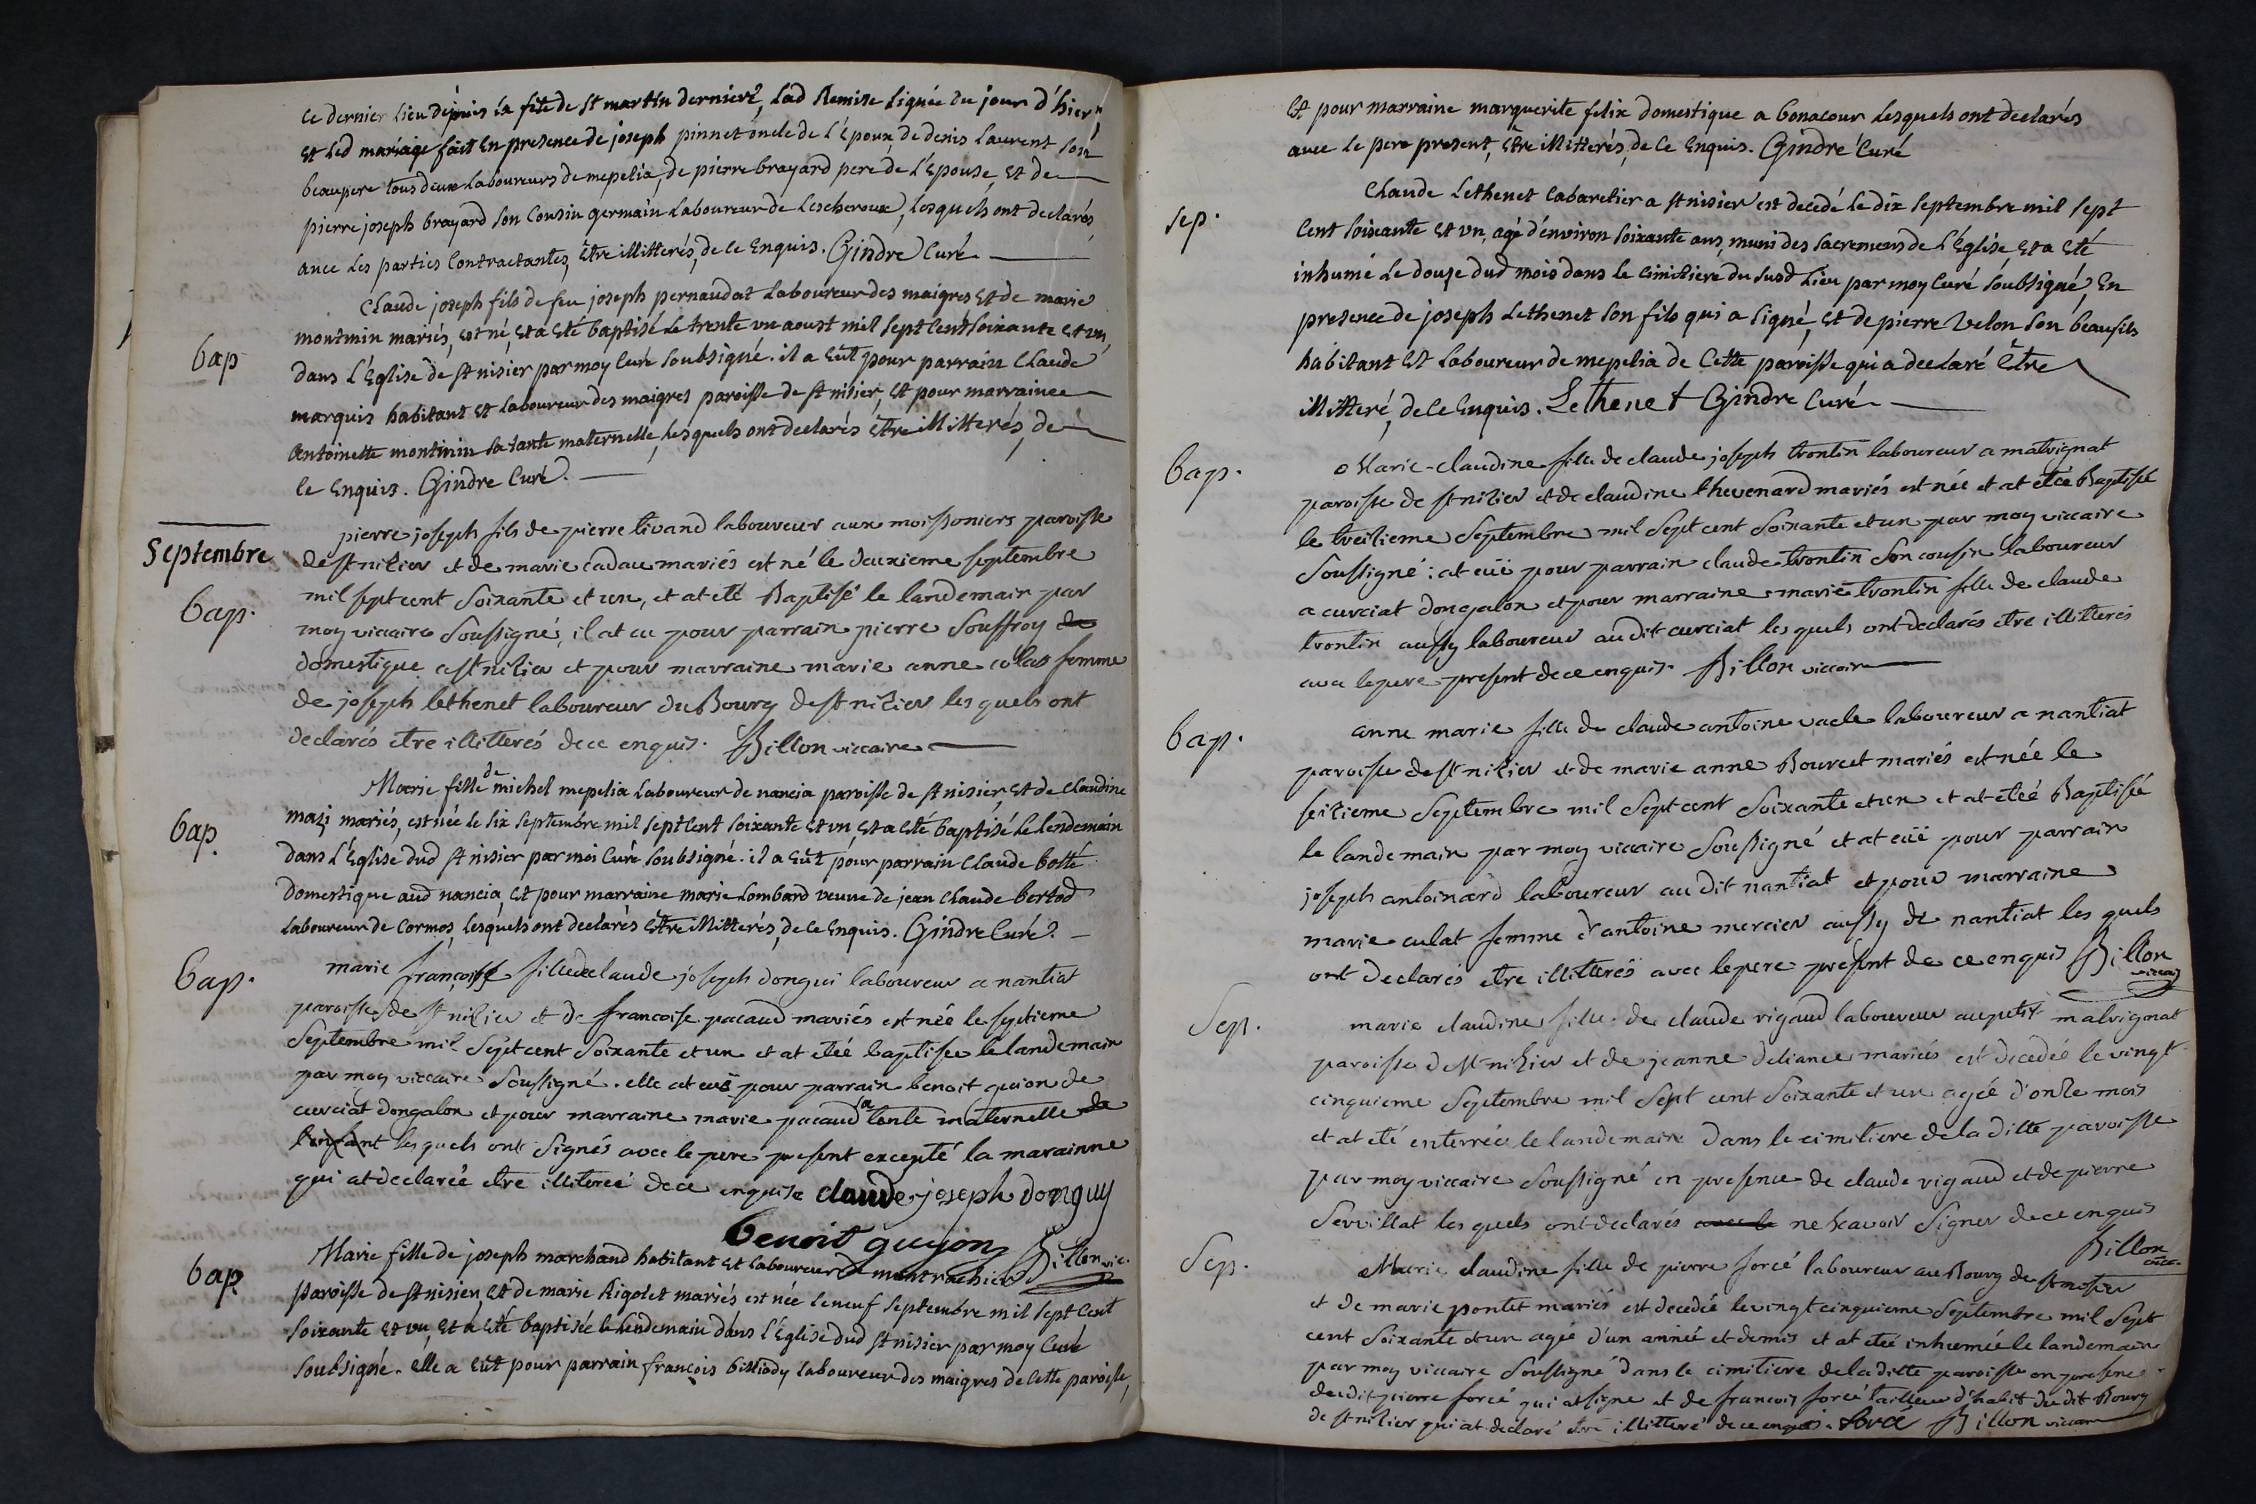 ce dernier lieu depuis la fête de st martin derniere, lad Remise signée du jour d'hier,
et led mariage fait en presence de joseph pinnet oncle de l'Epoux, de denis Laurent son
beaupere tous deux Laboureurs de mepelia, de pierre brayard pere de L'Epouse, et de
pierre joseph brayard son Cousin germain Laboureur de Lescheroux, Lesquels ont declarés,
avec Les parties Contractantes, Etre illitterés, de ce Enquis. Gindre Curé
Claude joseph fils de feu joseph pernaudat Laboureur des maigres et de marie
bap
montmin mariés, est né, et a eté baptisé Le trente un aoust mil sept Cent soixante et un,
dans L'Eglise de st nisier par moy Curé soubsigné. il a eût pour parrain Claude
marquis habitant et Laboureur des maigres paroisse de st nisier, et pour marraine
Antoinette montmin sa tante maternelle, Lesquels ont declarés Etre illitterés, de
ce Enquis. Gindre Curé.
Septembre
pierre joseph fils de pierre tivand laboureur aux moissoniers paroisse
de st nizier et de marie cadau mariés est né le deuxieme septembre
bap.
mil sept cent soixante et un, et at eté Baptisé le landemain par
moy viccaire soussigné, il at eu pour parrain pierre souffroy de
domestique a st nizier et pour marraine marie anne colas femme
de joseph lethenet laboureur du Bourg de st nizier les quels ont
declarés etre illitterés de ce enquis. Billon viccaire
Marie fille de michel mepelia Laboureur de nancia paroisse de st nisier, et de Claudine
bap.
mazi mariés, est née le six septembre mil sept Cent soixante et un, et a eté baptisé Le lendemain
dans L'Eglise dud st nisier par moi Curé soubsigné. il a eût pour parrain Claude botté
domestique aud nancia, et pour marraine marie Lombard veuve de jean Claude bertod
Laboureur de Cormos, Lesquels ont declarés Etre illitterés, de ce Enquis. Gindre Curé.
bap.
marie françoise fille de claude joseph dongui laboureur a nantiat
paroisse de st nizier et de francoise pacaud mariés est née le septieme
septembre mil sept cent soixante et un et at etéé baptisee le landemain
par moy viccaire soussigné. elle at euë pour parrain benoit guion de
curciat dongalon et pour marraine marie pacaud sa tente maternelle de
l'enfant les quels ont signés avec le pere present excepté la marainne
qui at declareé etre illitereé de ce enquise claude joseph donguy
benoit guyon Billon vic.
bap
Marie fille de joseph marchand habitant et Laboureur de montrachier
paroisse de st nisier, et de marie Rigolet mariés est née le neuf septembre mil sept Cent
soixante et un, et a eté baptisée le Lendemain dans l'Eglise dud st nisier par moy Curé
soubsigné. elle a eût pour parrain françois billiody Laboureur des maigres de Cette paroisse,
et pour marraine marguerite felix domestique a bonacour Lesquels ont declarés
avec Le pere present, Etre illitterés, de ce Enquis. Gindre Curé
sep.
Claude Lethenet Cabaretier a st nisier est decedé Le dix septembre mil sept
Cent soixante et un, agé d'environ soixante ans, muni des sacremens de l'Eglise, et a eté
inhumé Le douze dud mois dans le cimitiere du susd Lieu par moy Curé soubsigné, En
presence de joseph Lethenet son fils qui a signé, et de pierre velon son beaufils
habitant et Laboureur de mepelia de Cette paroisse qui a declaré Etre
illitteré, de ce Enquis. Lethenet Gindre Curé
bap.
Marie-claudine fille de claude joseph trontin laboureur a malvignat
paroisse de st nizier et de claudine thevenard mariés est née et at etéé Baptisé
le treizieme septembre mil sept cent soixante et un par moy viccaire
soussigné: at euë pour parrain claude trontin son cousin laboureur
a curciat dongalon et pour marraine marie trontin fille de claude
trontin aussy laboureur au dit curciat les quels ont declarés etre illitterés
avec le pere present de ce enquis. Billon viccaire
bap.
anne marie fille de claude antoine vacle laboureur a nantiat
paroisse de st nizier et de marie anne Bourcet mariés est née le
seizieme septembre mil sept cent soixante et un et at etéé Baptisé
le landemain par moy viccaire soussigné et at euë pour parrain
joseph antoinard laboureur au dit nantiat et pour marraine
marie culat femme d'antoine mercier aussy de nantiat les quels
ont declarés etre illitterés avec le pere present de ce enquis Billon
viccaire
Sep.
marie claudine fille de claude rigaud laboureur au petit malvignat
paroisse de st nizier et de jeanne deliance mariés est decedéé le vingt
cinquieme septembre mil sept cent soixante et un agéé d'onze mois
et at eté enterrée le landemain dans le cimitiere de la ditte paroisse
par moy viccaire soussigné en presence de claude rigaud et de pierre
servillat les quels ont declarés avec le ne scavoir signer de ce enquis
Billon
vicc.
Sep.
Marie claudine fille de pierre forcé laboureur au Bourg de st nizier
et de marie pontet mariés est decedéé le vingt cinquieme septembre mil sept
cent soixante et un agéé d'un anneé et demis et at etéé inhuméé le landemain
par moy viccaire soussigné dans le cimitiere de la ditte paroisse en presence
du dit pierre forcé qui at signe et de francois forcé tailleur d'habit du dit Bourg
de st nizier qui at declaré etre illitteré de ce enquis. forcé Billon viccaire